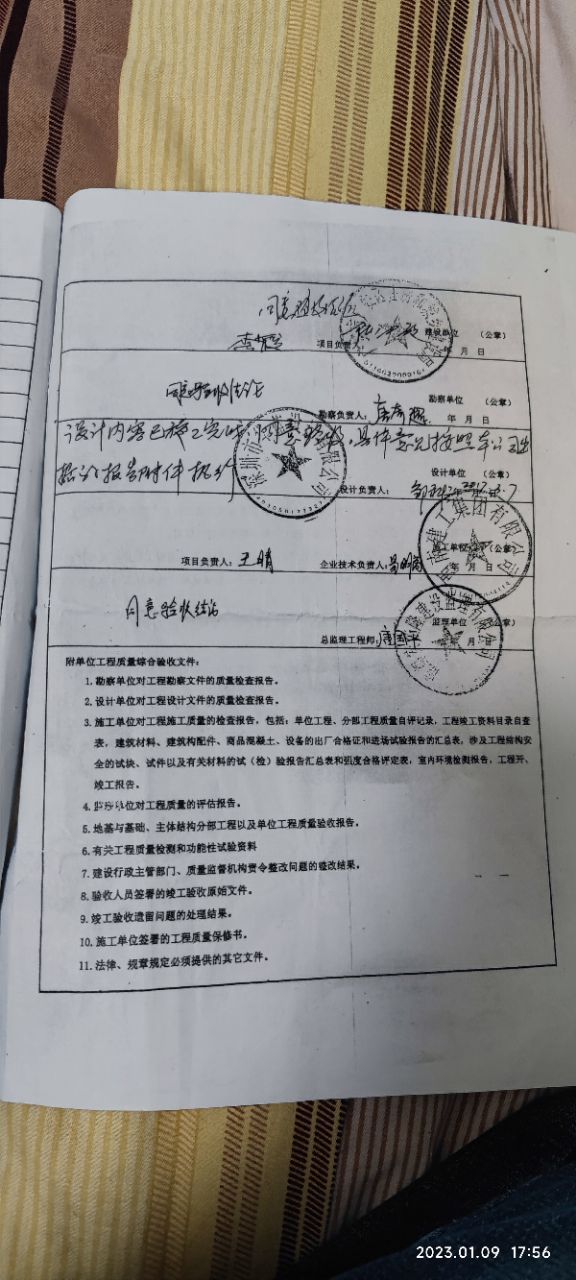 同意验收结论
项目负责人：
建设单位 （公章）
年 月 日
同意验收结论
勘察单位 （公章）
勘察负责人：
年 月 日
设计内容已施工完毕，同意验收，具体意见按照本公司出
设计单位 （公章）
设计负责人：
深圳市
有限公司
项目负责人：王晴
企业技术负责人：
施工单位 （公章）
年 月 日
建工集团有限公司
同意验收结论
监理单位 （公章）
总监理工程师：
年 月 日
建设监理有限公司
附单位工程质量综合验收文件：
1. 勘察单位对工程勘察文件的质量检查报告。
2. 设计单位对工程设计文件的质量检查报告。
3. 施工单位对工程施工质量的检查报告，包括：单位工程、分部工程质量自评记录，工程竣工资料目录自查
表，建筑材料、建筑构配件、商品混凝土、设备的出厂合格证和进场试验报告的汇总表，涉及工程结构安
全的试块、试件以及有关材料的试（检）验报告汇总表和强度合格评定表，室内环境检测报告，工程开、
竣工报告。
4. 监理单位对工程质量的评估报告。
5. 地基与基础、主体结构分部工程以及单位工程质量验收报告。
6. 有关工程质量检测和功能性试验资料
7. 建设行政主管部门、质量监督机构责令整改问题的整改结果。
8. 验收人员签署的竣工验收原始文件。
9. 竣工验收遗留问题的处理结果。
10. 施工单位签署的工程质量保修书。
11. 法律、规章规定必须提供的其它文件。
2023.01.09 17:56